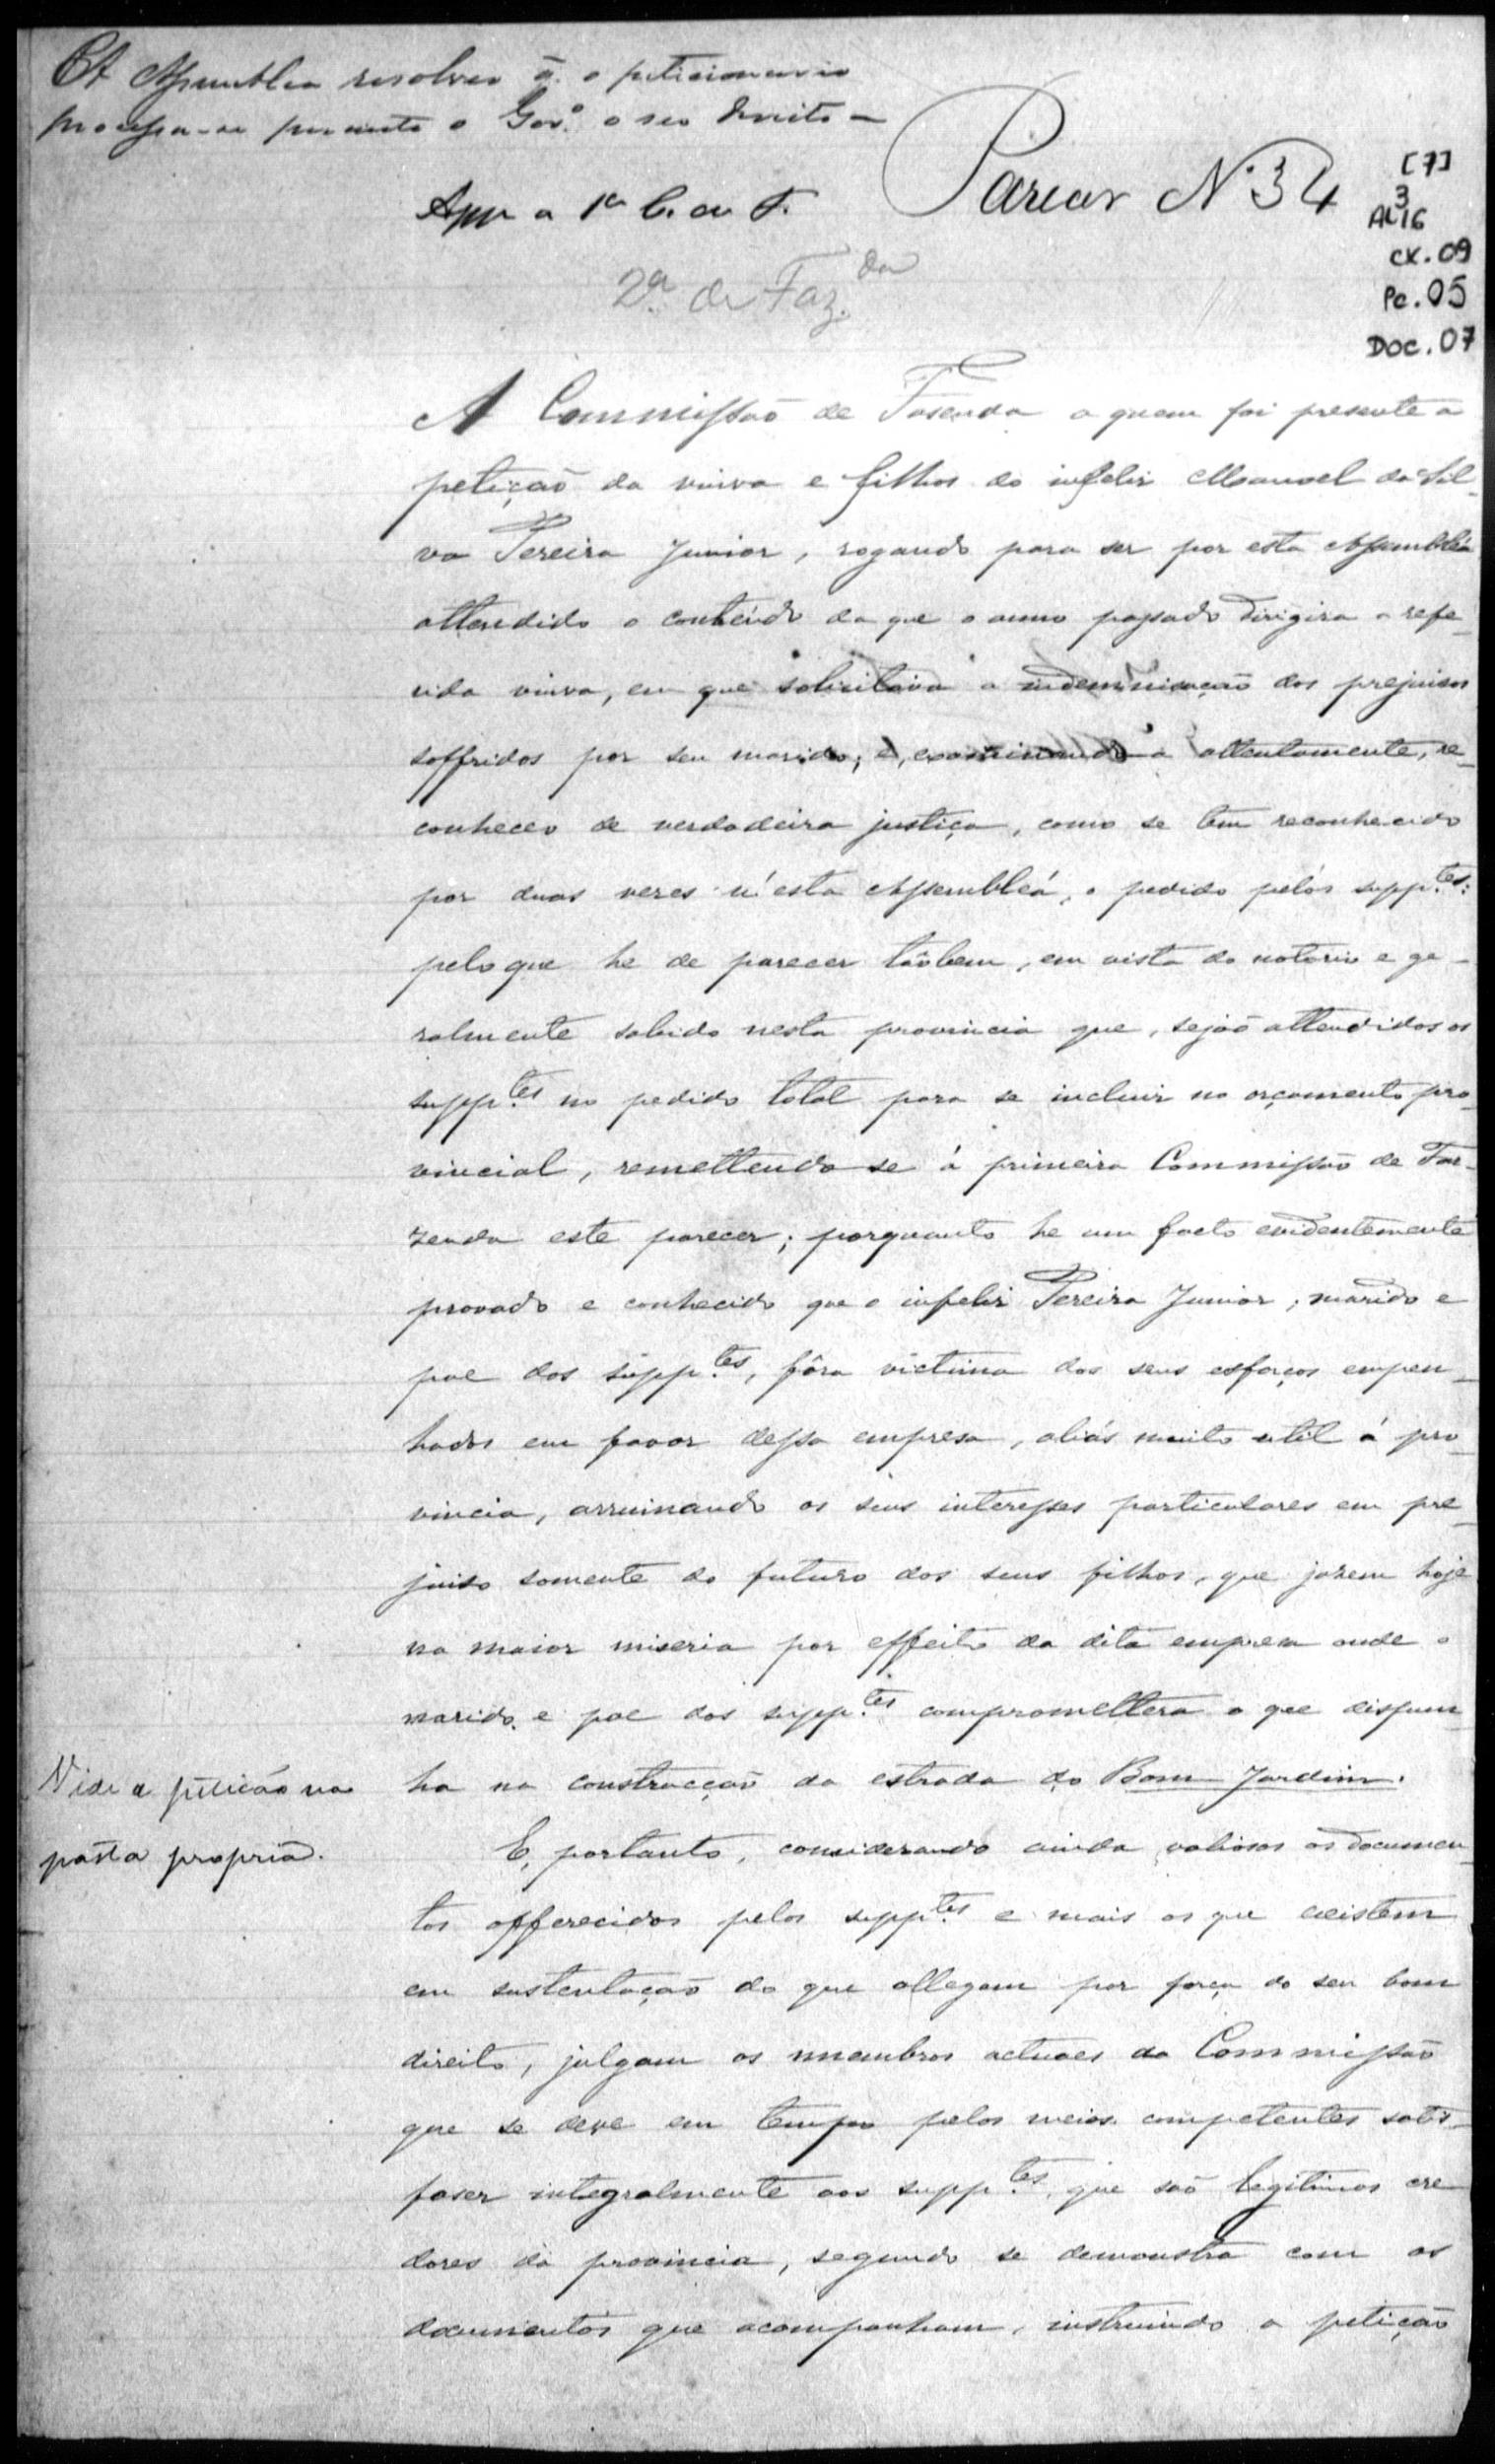 A Assemblea resolveo q̃ o peticionario
 perante o Gov.º o seo direito —
Parecer Nº 34
[7]
3
AL 16
cx. 09
Pc. 05
Doc. 07
App a 1ª
2ª de Faz.da
A Commissaõ de Fasenda a quem foi presente a
petiçaõ da viuva e filhos do infeliz Manoel da Sil-
va Pereira Junior, rogando para ser por esta Assembléa
attendido o conteúdo da que o anno passado dirigira a refe-
rida viuva, em que solicitava a indemnisaçaõ dos prejuisos
soffridos por seu marido; e, examinando-a attentamente, re-
conheceo de verdadeira justiça, como se tem reconhecido
por duas vezes n'esta Assembleá, o pedido pelos supp.tes:
pelo que he de parecer taõbem, em vista do notorio e ge-
ralmente sabido nesta provincia que, sejaõ attendidos os
supp.tes no pedido total para se incluir no orçamento pro-
vincial, remettendo se á primeira Commissaõ de Faz-
zenda este parecer; porquanto he um facto evidentemente
provado e conhecido que o infeliz Pereira Junior, marido e
pae dos supp.tes, fôra victima dos seus esforços empen-
hados em favor dessa empresa, aliás muito util á pro-
vincia, arruinando os seus interesses particulares em pre-
juiso somente do futuro dos seus filhos, que jazem hoje
na maior miseria por effeito da dita empresa onde o
marido e pae dos supp.tes compromettera o que dispun-
ha na construcçaõ da estrada do Bom Jardim.
Vide a petição na
pasta propria.
E, portanto, considerando ainda valiosos os documen-
tos offerecidos pelos supp.tes e mais os que existem
em sustentaçaõ do que allegam por força do seu bom
direito, julgam os membros actuaes da Commissaõ
que se deve em tempo pelos meios competentes satis-
faser integralmente aos supp.tes, que saõ legitimos cre-
dores da provincia, segundo se demonstra com os
documentos que acompanham, instruindo a petiçaõ